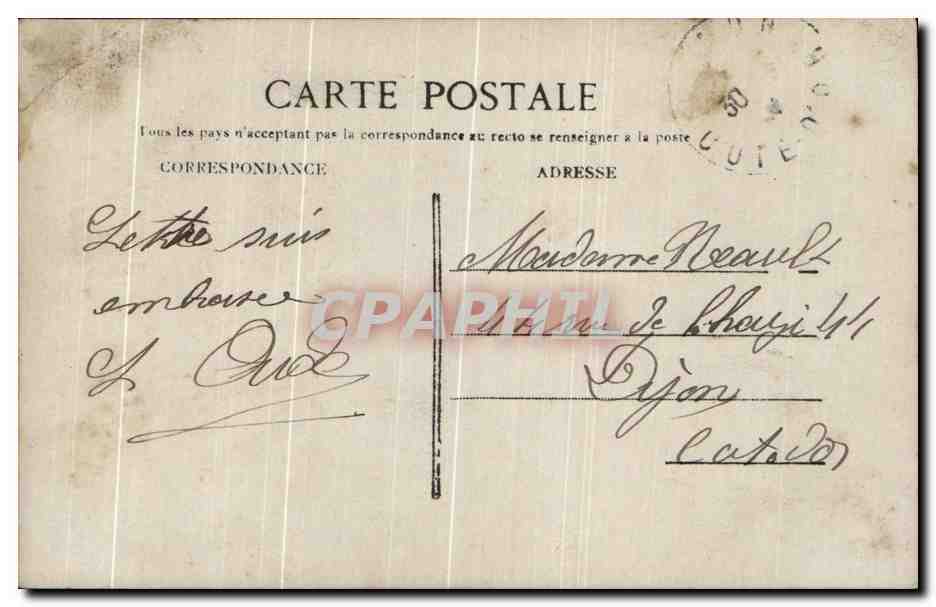 CARTE POSTALE
Tous les pays n'acceptant pas la correspondance au recto se renseigner a la poste
CORRESPONDANCE
ADRESSE
Lettre suis
embrasee
Madame
rue de 44
Dijon
Cot. dor
CPAPHIL
COTE
30